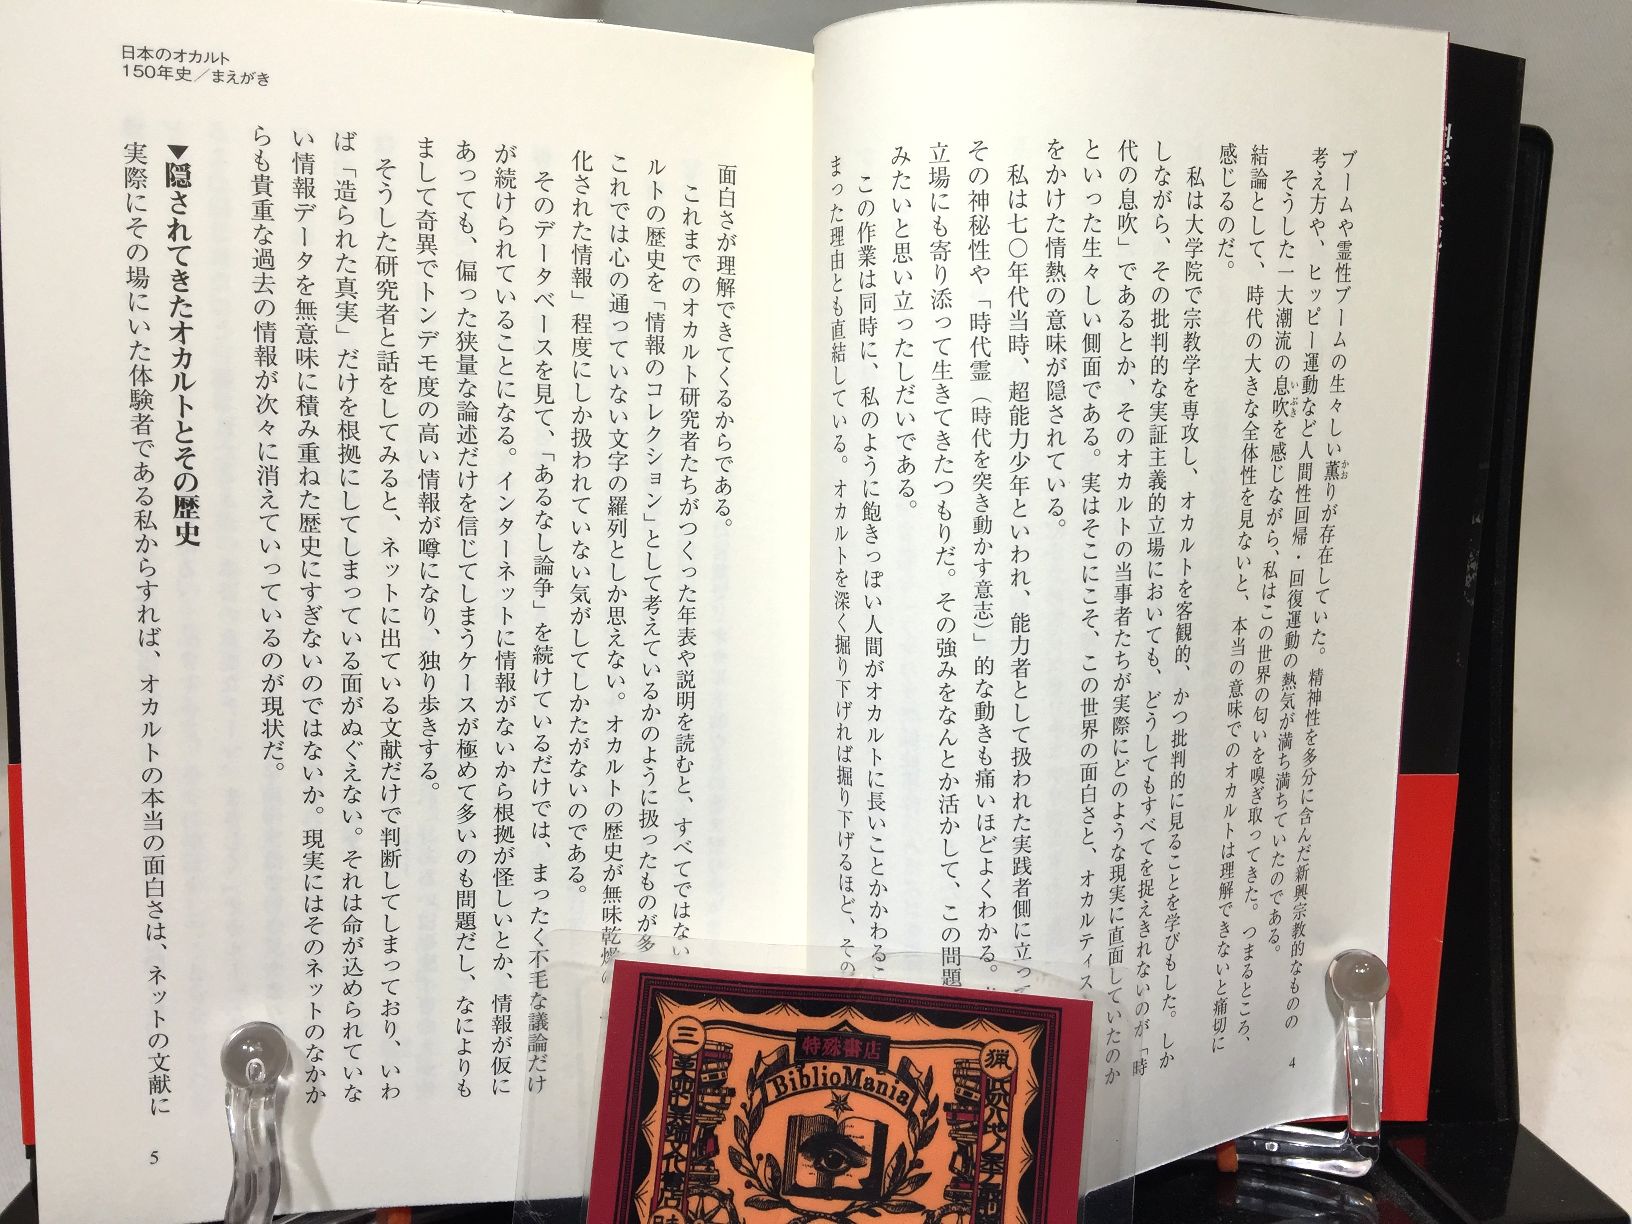 ブームや霊性ブームの生々しい薫りが存在していた。精神性を多分に含んだ新興宗教的なものの
考え方や、ヒッピー運動など人間性回帰・回復運動の熱気が満ち満ちていたのである。
そうした一大潮流の息吹を感じながら、私はこの世界の匂いを嗅ぎ取ってきた。つまるところ、
結論として、時代の大きな全体性を見ないと、本当の意味でのオカルトは理解できないと痛切に
感じるのだ。
私は大学院で宗教学を専攻し、オカルトを客観的、かつ批判的に見ることを学びもした。しか
しながら、その批判的な実証主義的立場においても、どうしてもすべてを捉えきれないのが「時
代の息吹」であるとか、そのオカルトの当事者たちが実際にどのような現実に直面していたのか
といった生々しい側面である。実はそこにこそ、この世界の面白さと、オカルティス
をかけた情熱の意味が隠されている。
私は七〇年代当時、超能力少年といわれ、能力者として扱われた実践者側に立って
その神秘性や「時代霊（時代を突き動かす意志）」的な動きも痛いほどよくわかる。
立場にも寄り添って生きてきたつもりだ。その強みをなんとか活かして、この問題
みたいと思い立ったしだいである。
この作業は同時に、私のように飽きっぽい人間がオカルトに長いことかかわるこ
まった理由とも直結している。オカルトを深く掘り下げれば掘り下げるほど、その
4
日本のオカルト
150年史／まえがき
面白さが理解できてくるからである。
これまでのオカルト研究者たちがつくった年表や説明を読むと、すべてではない
ルトの歴史を「情報のコレクション」として考えているかのように扱ったものが多
これでは心の通っていない文字の羅列としか思えない。オカルトの歴史が無味乾燥
化された情報」程度にしか扱われていない気がしてしかたがないのである。
そのデータベースを見て、「あるなし論争」を続けているだけでは、まったく不毛な議論だけ
が続けられていることになる。インターネットに情報がないから根拠が怪しいとか、情報が仮に
あっても、偏った狭量な論述だけを信じてしまうケースが極めて多いのも問題だし、なによりも
まして奇異でトンデモ度の高い情報が噂になり、独り歩きする。
そうした研究者と話をしてみると、ネットに出ている文献だけで判断してしまっており、いわ
ば「造られた真実」だけを根拠にしてしまっている面がぬぐえない。それは命が込められていな
い情報データを無意味に積み重ねた歴史にすぎないのではないか。現実にはそのネットのなかか
らも貴重な過去の情報が次々に消えていっているのが現状だ。
▼隠されてきたオカルトとその歴史
実際にその場にいた体験者である私からすれば、オカルトの本当の面白さは、ネットの文献に
5
特殊書店
BiblioMania
三
猟